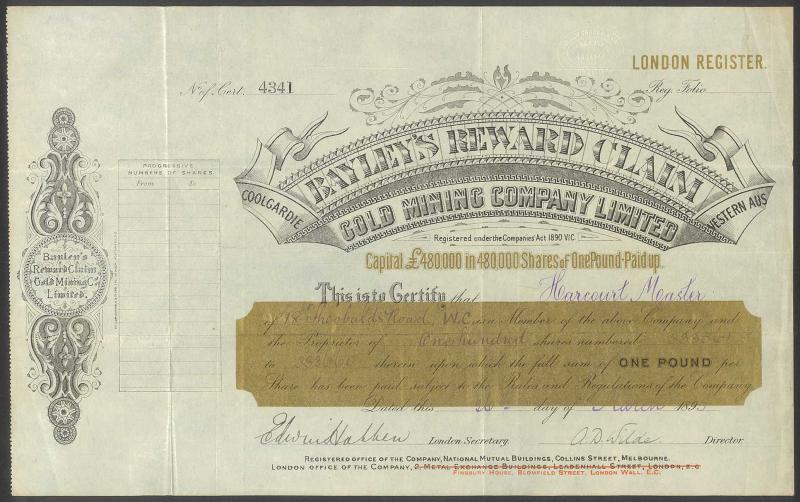 LONDON REGISTER.
No. of Cert. 4341
Reg. Folio
BAYLEY'S REWARD CLAIM
COOLGARDIE
GOLD MINING COMPANY LIMITED
WESTERN AUS
Registered under the Companies' Act 1890 VIC.
Capital £480,000 in 480,000 Shares of One Pound-Paid up.
PROGRESSIVE
NUMBERS OF SHARES.
From To
Bayley's
Reward Claim
Gold Mining Co.
Limited.
This is to Certify that Harcourt Master
of 18 Theobalds Road, W.C is a Member of the above Company and
the Proprietor of One hundred shares numbered
to therein upon which the full sum of ONE POUND per
Share has been paid subject to the Rules and Regulations of the Company
Dated this day of March 189
Edwin Habben London Secretary. Director
REGISTERED OFFICE OF THE COMPANY, NATIONAL MUTUAL BUILDINGS, COLLINS STREET, MELBOURNE.
LONDON OFFICE OF THE COMPANY, 2, METAL EXCHANGE BUILDINGS, LEADENHALL STREET, LONDON, E.C
FINSBURY HOUSE, BLOMFIELD STREET, LONDON WALL, E.C.